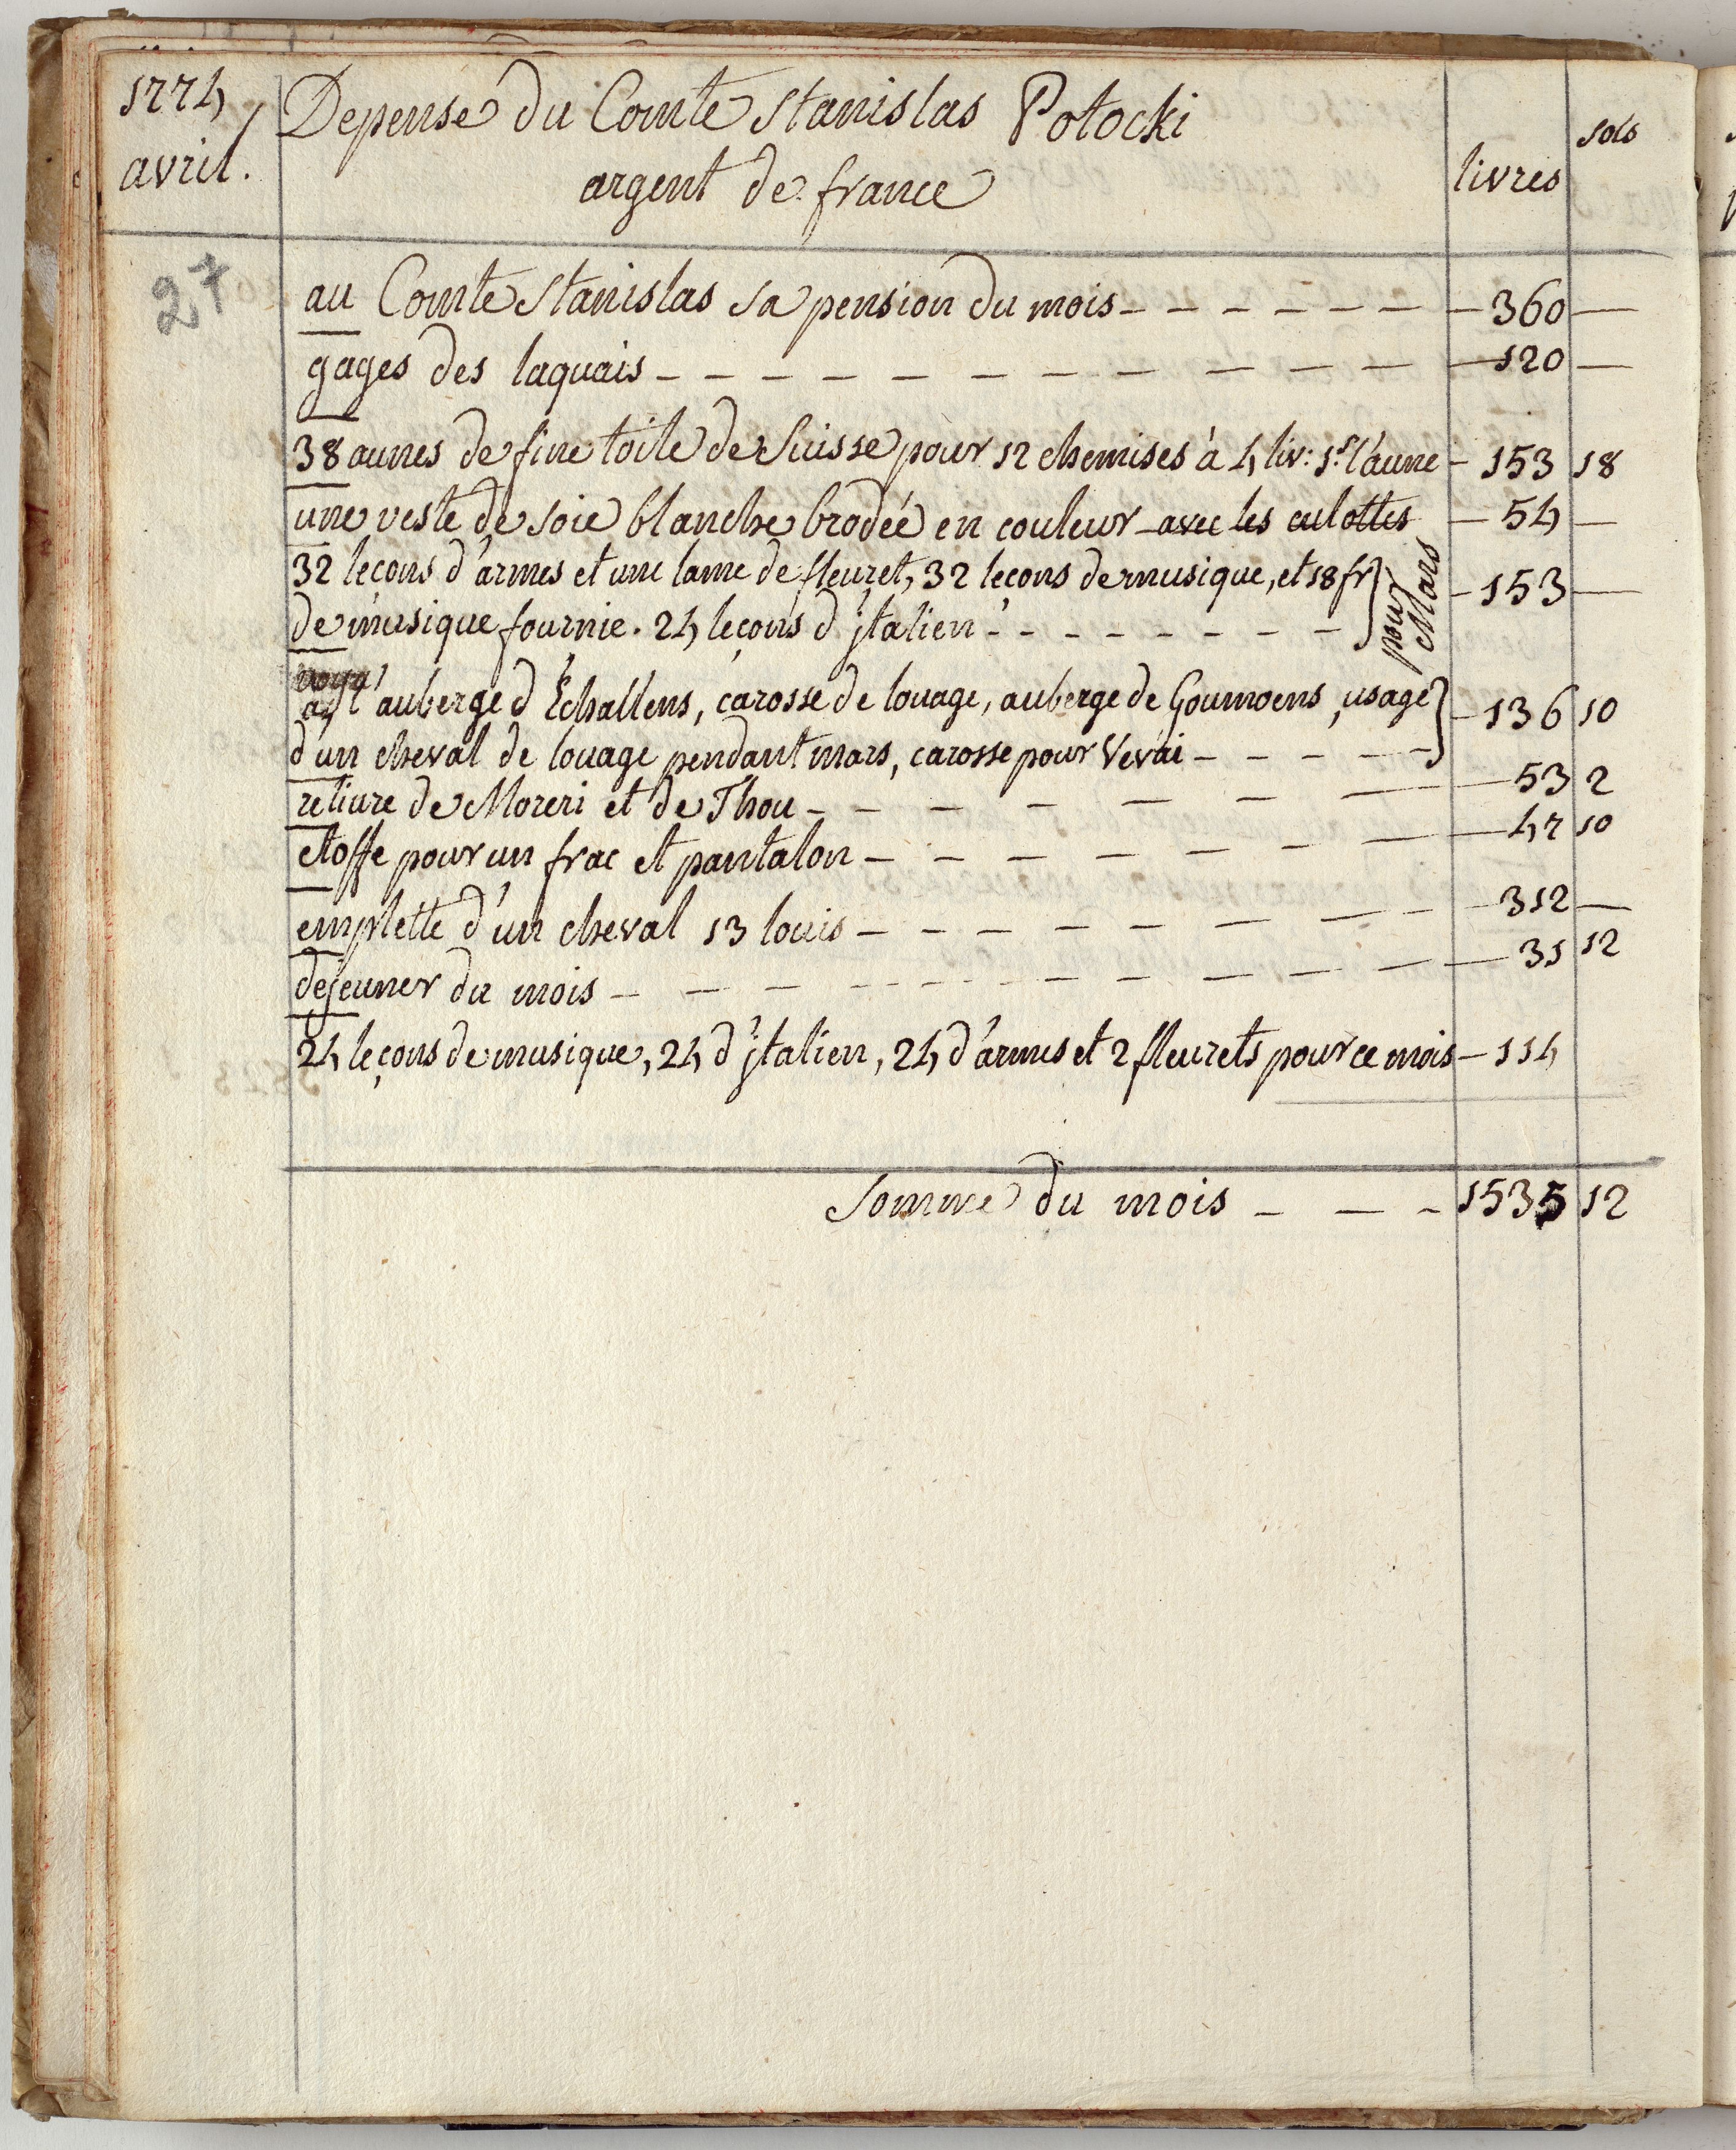 1774
avril.
Depense du Comte Stanislas Potocki
argent de france
livres
sols
27
au Comte Stanislas sa pension du mois - - - - - - - 360 -
gages des laquais - - - - - - - - - - - - 120 -
38 aunes de fine toile de Suisse pour 12 chemises à 4 liv: 1s l'aune - 153 18
une veste de soie blanche brodée en couleur avec les culottes - 54 -
32 leçons d'armes et une lame de fleuret, 32 leçons de musique, et 18 fr } - 153 -
de musique fournie. 24 leçons d'jtalien - - - - - - - -
pour Mars
à l'auberge d'Echallens, carosse de louage, auberge de Goumoens, usage } - 136 10
d'un cheval de louage pendant mars, carosse pour Vevai - - - - -
reliure de Moreri et de Thou - - - - - - - - 53 2
etoffe pour un frac et pantalon - - - - - - - - 47 10
emplette d'un cheval 13 louis - - - - - - - - - 312 -
dejeuner du mois - - - - - - - - - - - 31 12
24 leçons de musique, 24 d'jtalien, 24 d'armes et 2 fleurets pour ce mois - 114
Somme du mois - - - 1535 12